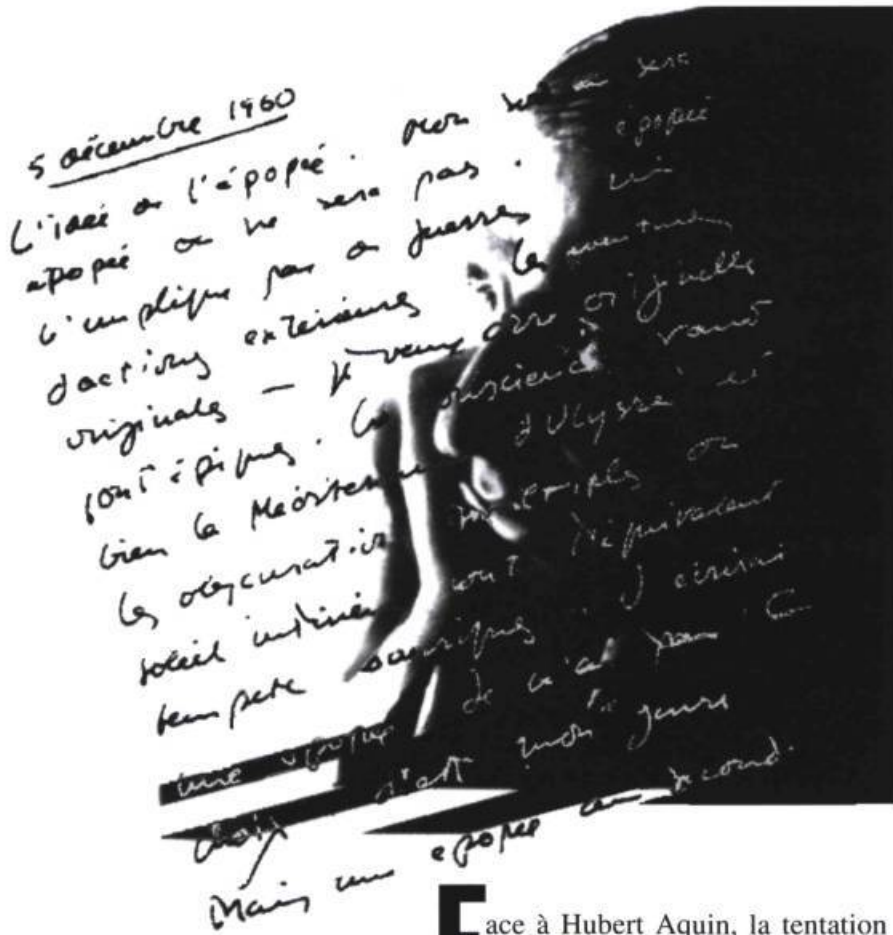 5 décembre 1960
L'idée de l'épopée. Mon sera
épopée ou ne sera pas. épopée
n'implique pas de guerres ni
d'actions extérieures. Les aventures
originales — je veux dire originelles
sont épiques. La conscience vaut
bien la d'Ulysse et
les multiples
soleil sont l'équivalent
J'écrirai
une épopée je n'ai pas le
choix c'est mon genre
Mais une épopée au second.
Face à Hubert Aquin, la tentation